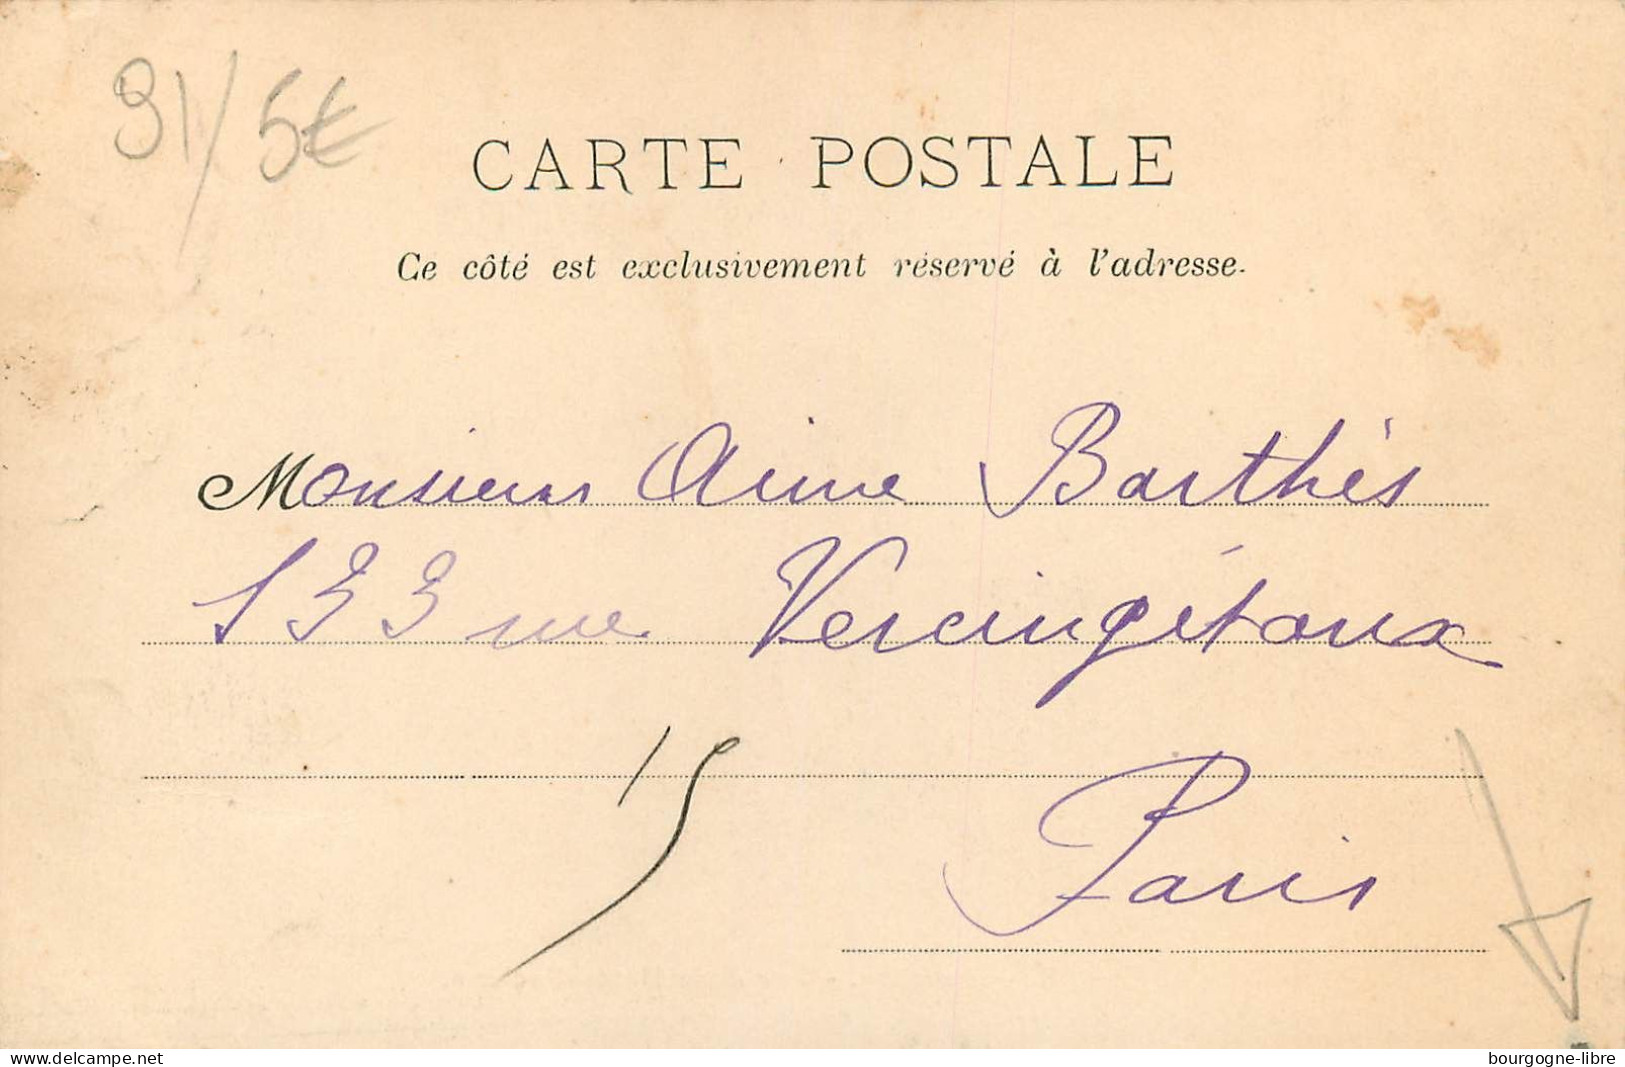 91/5€
CARTE POSTALE
Ce côté est exclusivement réservé à l'adresse.
Monsieur Aime Barthés
133 rue Vercingétorix
15
Paris
delcampe.net
bourgogne-libre